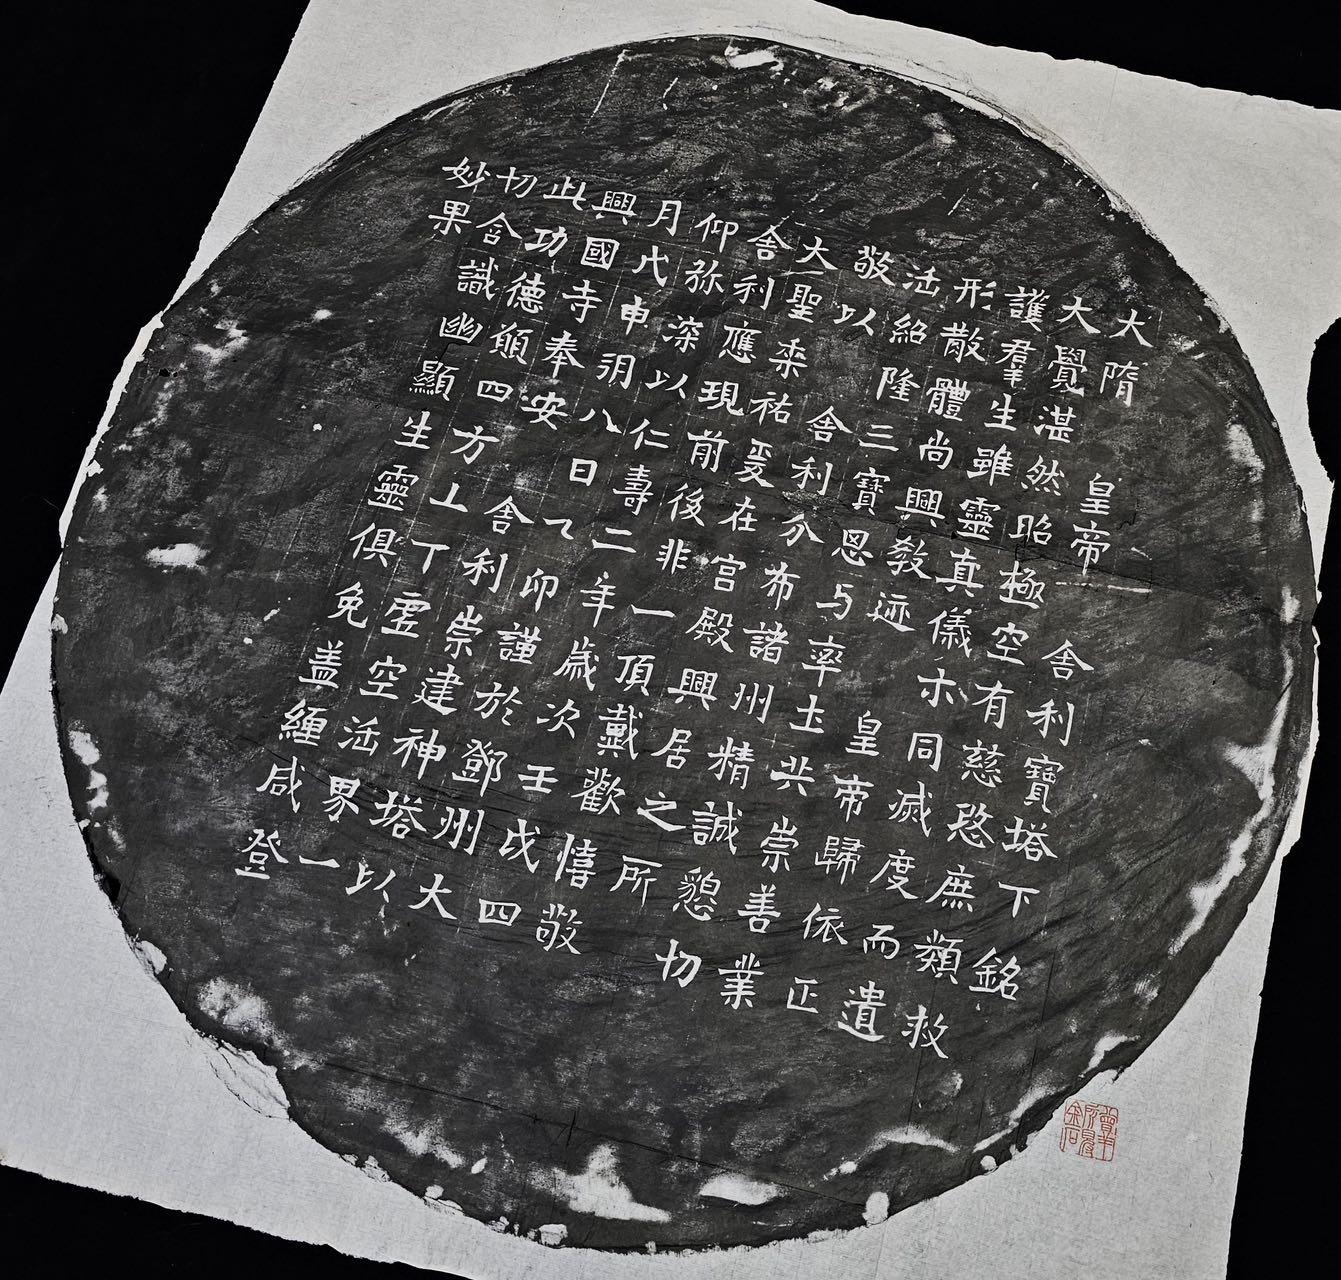 大隋 皇帝 舍利寶塔下銘
大覺湛然昭極空有慈愍庶類救
護羣生雖靈真儀示同滅度而遺
形散體尚興教迹 皇帝歸依正
法紹隆三寶思与率土共崇善業
敬以 舍利分布諸州精誠懇切
大聖垂祐爰在宮殿興居之所
舍利應現前後非一頂戴歡憘敬
仰弥深以仁壽二年歲次壬戌四
月戊申朔八日乙卯謹於鄧州大
興國寺奉安 舍利崇建神塔以
此功德願四方上下虛空法界一
切含識幽顯生靈俱免盖纏咸登
妙果